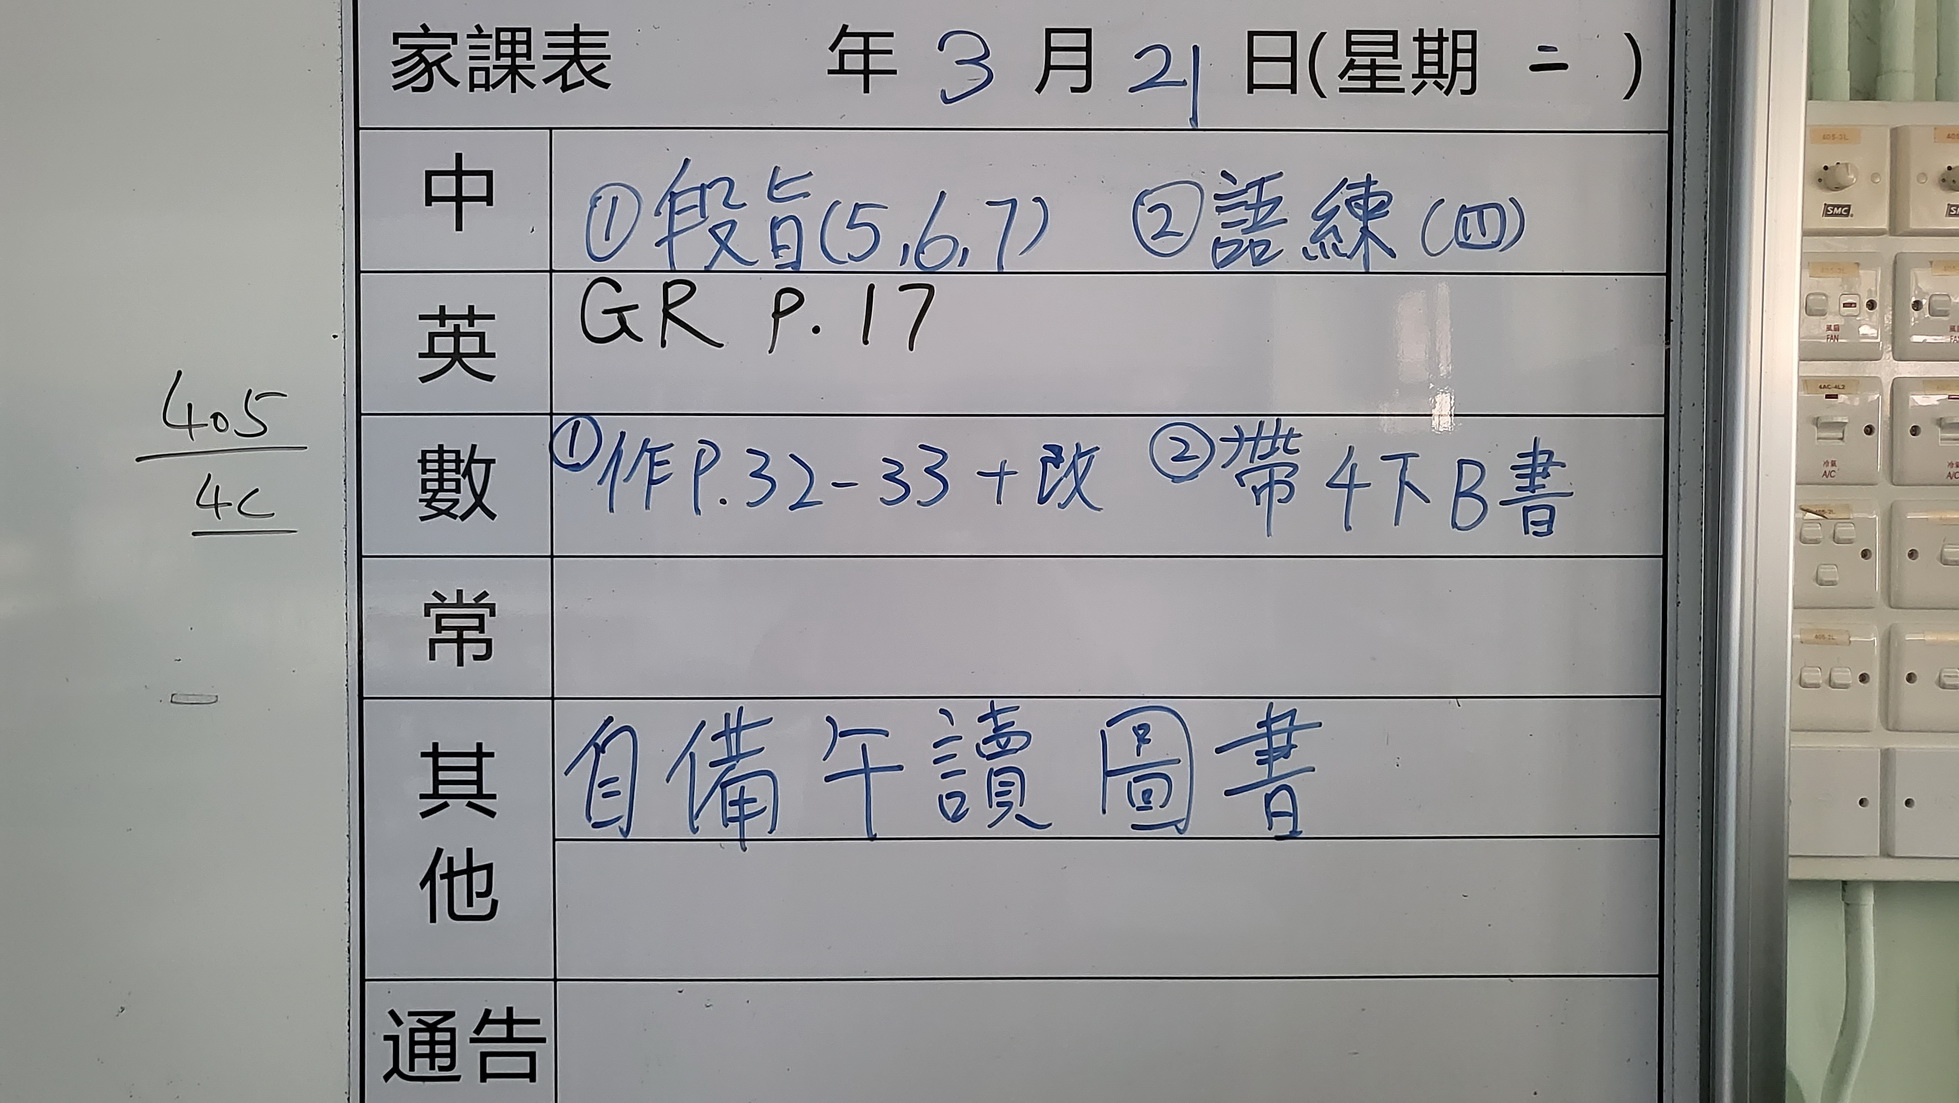 家課表 年 3 月 21 日(星期 二 )
中 ①段旨(5,6,7) ②語練(四)
英 GR P.17
數 ①作P.32-33+改 ②帶4下B書
常
其他 自備午讀圖書
通告
405
4C
SMC
風扇
FAN
冷氣
A/C